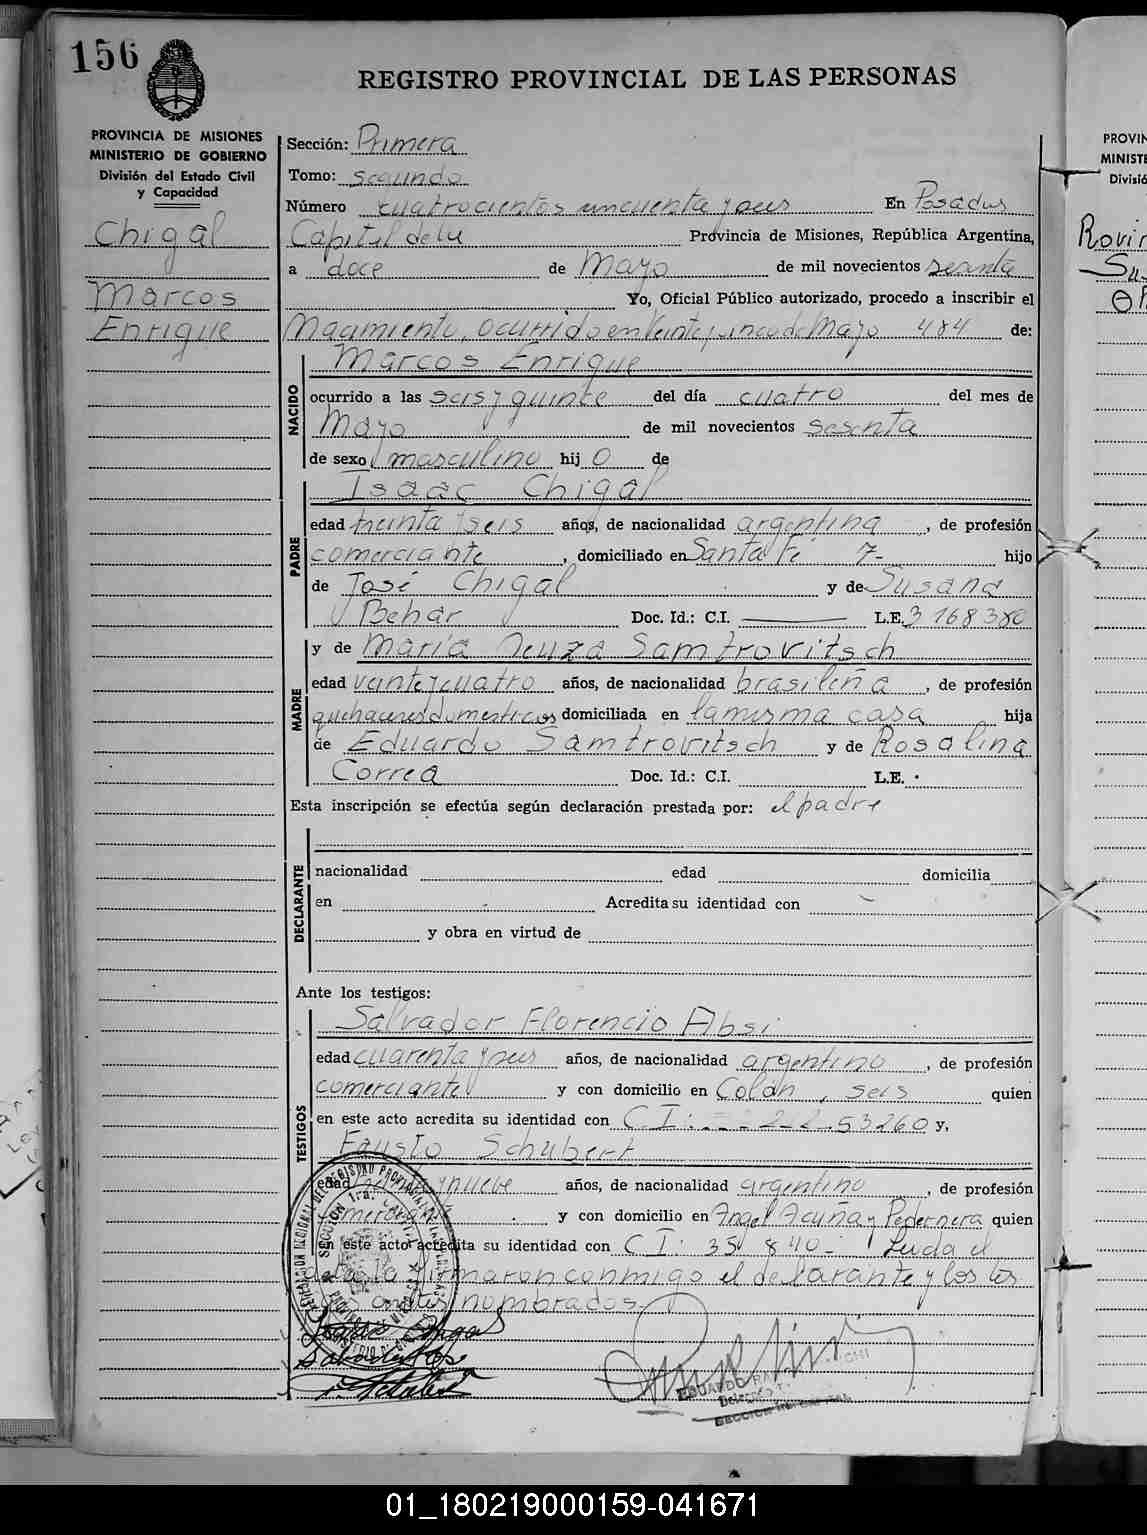 156
REGISTRO PROVINCIAL DE LAS PERSONAS
PROVINCIA DE MISIONES
MINISTERIO DE GOBIERNO
División del Estado Civil
y Capacidad
Chigal
Marcos
Enrique
Sección: Primera
Tomo: segundo
Número cuatrocientos cincuenta y seis En Posadas
Capital de la Provincia de Misiones, República Argentina,
a doce de Mayo de mil novecientos sesenta
Yo, Oficial Público autorizado, procedo a inscribir el
Nacimiento, ocurrido en Veinte y cinco de Mayo 484 de:
NACIDO
Marcos Enrique
ocurrido a las seis y quince del día cuatro del mes de
Mayo de mil novecientos sesenta
de sexo masculino hij o de
PADRE
Isaac Chigal
edad treinta y seis años, de nacionalidad argentina, de profesión
comerciante, domiciliado en Santa Fé 7- hijo
de José Chigal y de Susana
Behar Doc. Id.: C.I. L.E. 3168380
MADRE
y de María Neuza Samtrovitsch
edad veinte y cuatro años, de nacionalidad brasileña, de profesión
quehaceres domésticos domiciliada en la misma casa hija
de Eduardo Samtrovitsch y de Rosalina
Correa Doc. Id.: C.I. L.E.
Esta inscripción se efectúa según declaración prestada por: el padre
DECLARANTE
nacionalidad edad domicilia
en Acredita su identidad con
y obra en virtud de
Ante los testigos:
TESTIGOS
Salvador Florencio Absi
edad cuarenta y seis años, de nacionalidad argentino, de profesión
comerciante y con domicilio en Colón, seis quien
en este acto acredita su identidad con C.I: 53260 y,
Fausto Schubert
edad y nueve años, de nacionalidad argentino, de profesión
y con domicilio en Angel Acuña y Pedernera quien
en este acto acredita su identidad con C I: 35 840- Leida el
acta la firmaron conmigo el declarante y los tes
antes nombrados.
EDUARDO
PROVIN
MINISTE
Divisió
Rovir
Su
01_180219000159-041671